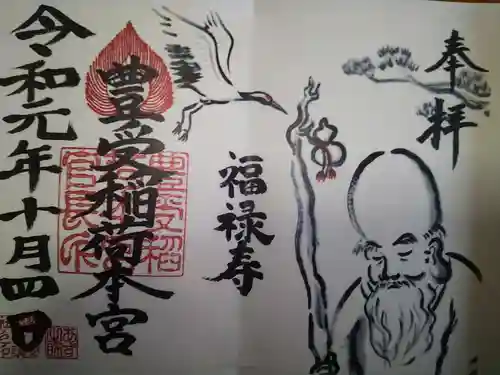 奉拝
福禄寿
豊受稲荷本宮
令和元年十月四日